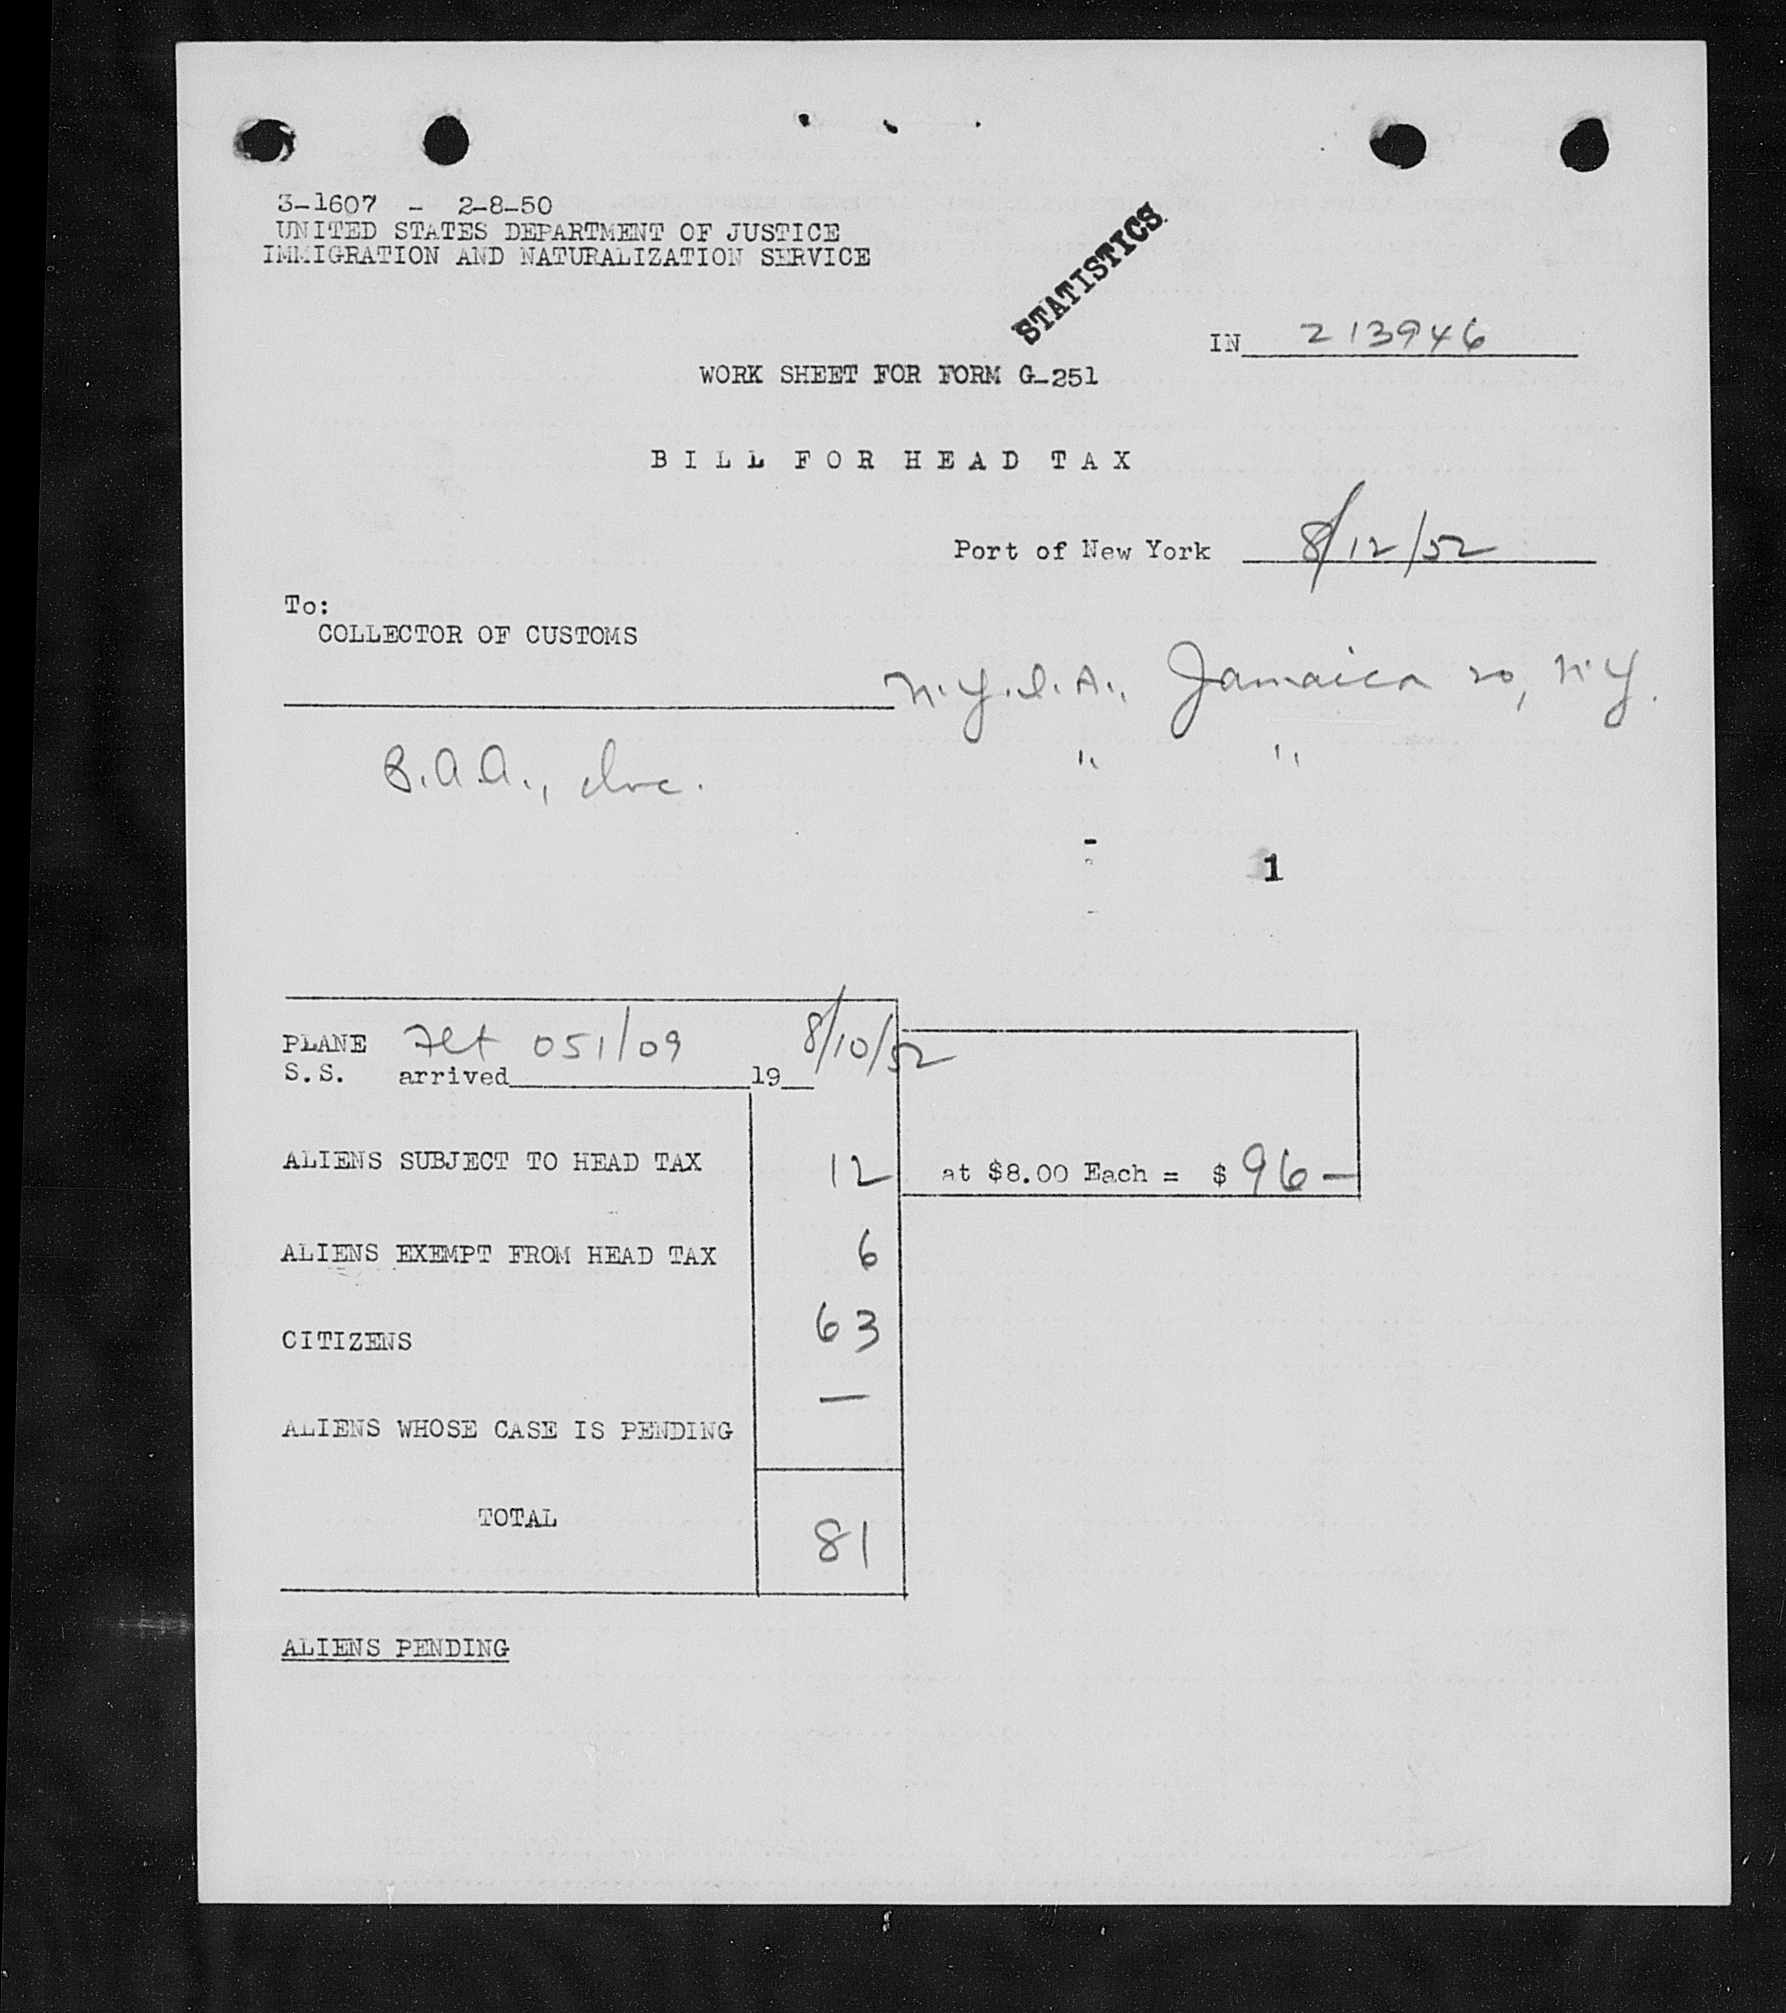 3-1607 - 2-8-50
UNITED STATES DEPARTMENT OF JUSTICE
IMMIGRATION AND NATURALIZATION SERVICE
STATISTICS
IN 213946
WORK SHEET FOR FORM G-251
BILL FOR HEAD TAX
Port of New York 8/12/52
To:
COLLECTOR OF CUSTOMS
N.Y.I.A., Jamaica 20, N.Y.
S.A.A., Inc. " "
1
PLANE Flt 051/09 8/10/52
S.S. arrived 19
ALIENS SUBJECT TO HEAD TAX 12 at $8.00 Each = $ 96 —
ALIENS EXEMPT FROM HEAD TAX 6
CITIZENS 63
ALIENS WHOSE CASE IS PENDING —
TOTAL 81
ALIENS PENDING